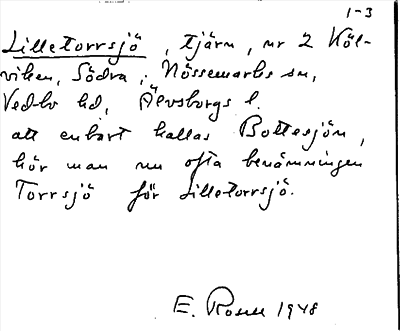 1-3
Lilletorrsjö, tjärn, nr 2 Köl-
viken, Södra; Nössemarks sn,
Vedbo hd, Älvsborgs l.
att enbart kallas Bottesjön,
hör man nu ofta benämningen
Torrsjö för Lilletorrsjö.
E. Rosell 1948